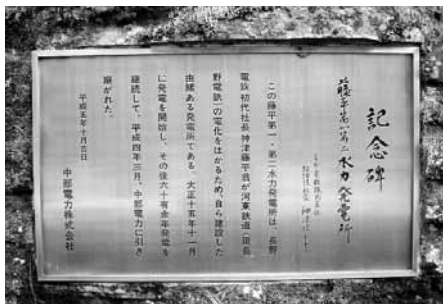 記念碑
藤平第一第二水力発電所
この藤平第一・第二水力発電所は、長野
電鉄初代社長神津藤平翁が河東鉄道(現長
野電鉄)の電化をはかるため、自ら建設した
由緒ある発電所である。大正十五年十一月
に発電を開始し、その後六十有余年発電を
継続して、平成四年三月、中部電力に引き
継がれた。
平成五年十月吉日
中部電力株式会社